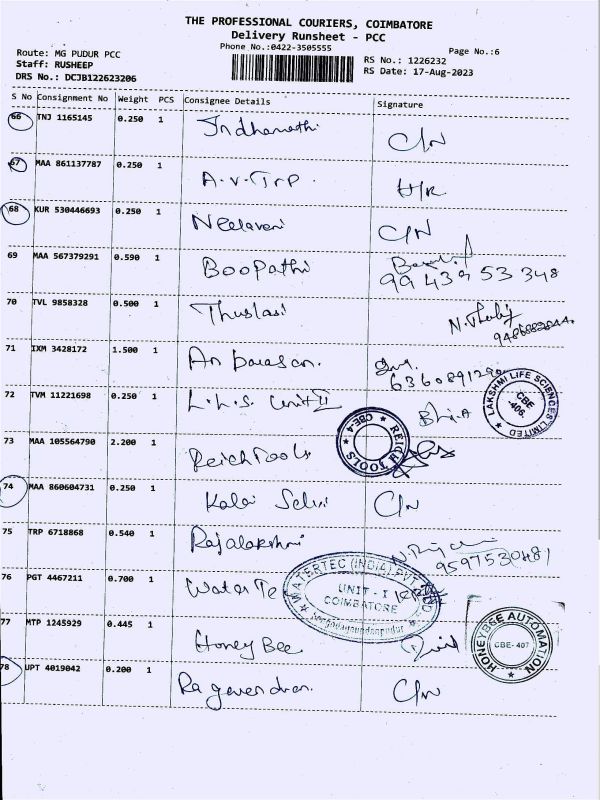 THE PROFESSIONAL COURIERS, COIMBATORE
Delivery Runsheet - PCC
Phone No.:0422-3505555
Page No.:6
Route: MG PUDUR PCC
Staff: RUSHEEP
DRS No.: DCJB122623206
RS No.: 1226232
RS Date: 17-Aug-2023
S No Consignment No Weight PCS Consignee Details Signature
66 TNJ 1165145 0.250 1 Indhumathi C/N
67 MAA 861137787 0.250 1 A.V.Trp. H/R
68 KUR 530446693 0.250 1 Neelaveni C/N
69 MAA 567379291 0.590 1 Boopathi
99439 53348
70 TVL 9858328 0.500 1 Thuslasi
71 IXM 3428172 1.500 1 Anbarasan.
6360891290
72 TVM 11221698 0.250 1 L.L.S. Unit II
LAKSHMI LIFE SCIENCES LIMITED
CBE -406.
73 MAA 105564790 2.200 1 Reich Tools
REICH TOOLS CBE-4
74 MAA 860604731 0.250 1 Kalai Selvi C/N
75 TRP 6718868 0.540 1 Rajalakshmi
9597530481
76 PGT 4467211 0.700 1 Water Te
WATERTEC (INDIA) PVT LTD
UNIT - I
COIMBATORE
77 MTP 1245929 0.445 1 Honey Bee
HONEYBEE AUTOMATION
CBE- 407
78 UPT 4019042 0.200 1 Ragavendran. C/N